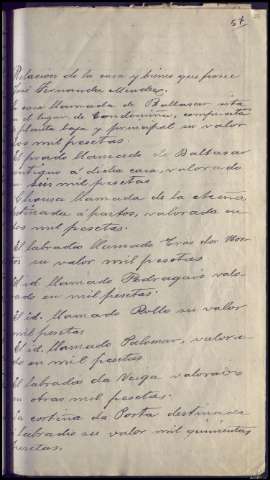 51
Relacion de la casa y bienes que posee
José Fernandez Mendez.
a casa llamada de Baltasar sita
n el lugar de Condomina, compuesta
planta baja y principal su valor
dos mil pesetas.
El prado llamado de Baltasar
ontiguo á dicha casa, valorado
en mil pesetas
Chousa llamada de la
destinada á pastos, valorada en
dos mil pesetas.
El labradio llamado Tras dos
su valor mil pesetas
El id. llamado valo-
rado en mil pesetas.
El id. llamado Rollo su valor
mil pesetas
El id. llamado Palomar, valora-
do en mil pesetas
El labradio da Veiga valorado
en otras mil pesetas.
La cortiña da Porta destinada
á labradio su valor mil quinientas
pesetas.